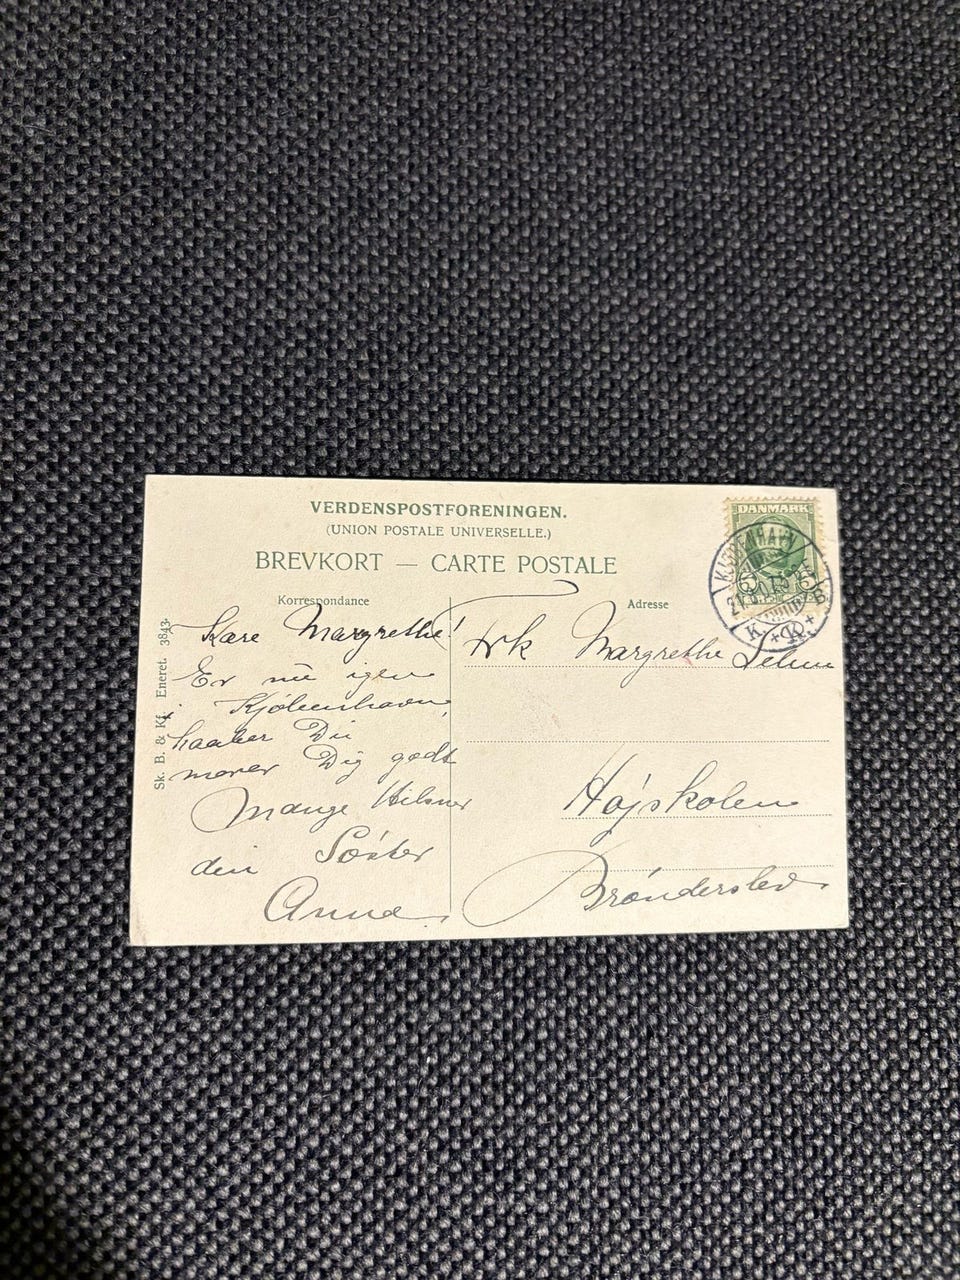 VERDENSPOSTFORENINGEN.
(UNION POSTALE UNIVERSELLE.)
BREVKORT — CARTE POSTALE
Korrespondance
Kære Margrethe!
Er nu igen
i Kjøbenhavn,
haaber Du
morer Dig godt
Mange Hilsner
din Søster
Anna
Sk. B. & Kf. Eneret. 3843.
Adresse
DANMARK
5 5
KJØBENHAVN
K B
Frk Margrethe
Højskolen
Brønderslev